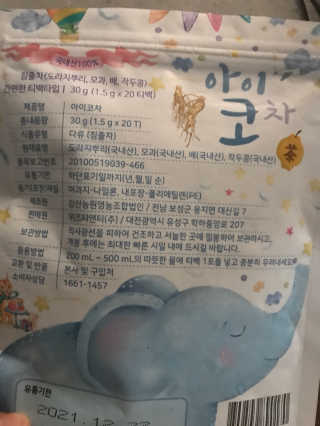 국내산100%
침출차(도라지뿌리, 모과, 배, 작두콩)
간편한 티백타입 | 30 g (1.5 g x 20 티백)
아이
코차
茶
제품명 아이코차
총내용량 30 g (1.5 g x 20 T)
식품유형 다류 (침출차)
원재료명 도라지뿌리(국내산), 모과(국내산), 배(국내산), 작두콩(국내산)
품목보고번호 20100519039-466
유통기한 하단표기일까지(년,월,일 순)
용기(포장)재질 여과지-나일론, 내포장-폴리에틸렌(PE)
제조원 영농조합법인 / 전남 보성군 웅치면 대산길 7
판매원 위즈타엔터(주) / 대전광역시 유성구 학하중앙로 207
보관방법 직사광선을 피하여 건조하고 서늘한 곳에 밀봉하여 보관하시고,
개봉 후에는 최대한 빠른 시일 내에 드시길 바랍니다.
음용방법 200 mL ~ 500 mL의 따뜻한 물에 티백 1포를 넣고 충분히 우려내세요
교환 및 반품 본사 및 구입처
소비자상담 1661-1457
유통기한
2021.12.